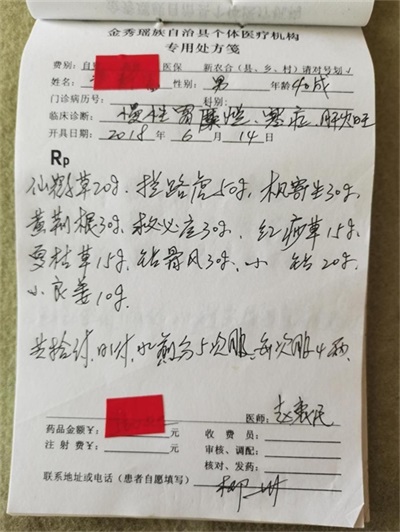 金秀瑶族自治县个体医疗机构
专用处方笺
费别:自 医保 新农合(县、乡、村)请对号划√
姓名: 性别:男 年龄40成
门诊病历号: 科别:
临床诊断:慢性胃糜烂、寒症、肝火旺
开具日期:2018年6月14日
Rp
仙鹤草20g、拦路虎50g、枫寄生30g、
黄荆根30g、救必应30g、红 草15g、
夏枯草15g、钻骨风30g、小钻20g、
小良姜10g.
共拾付,日1付,水煎分5次服,每次服4两.
医师:
药品金额¥: 元 收费员:
注射费¥: 元 审核、调配:
核对、发药:
联系地址或电话(患者自愿填写)